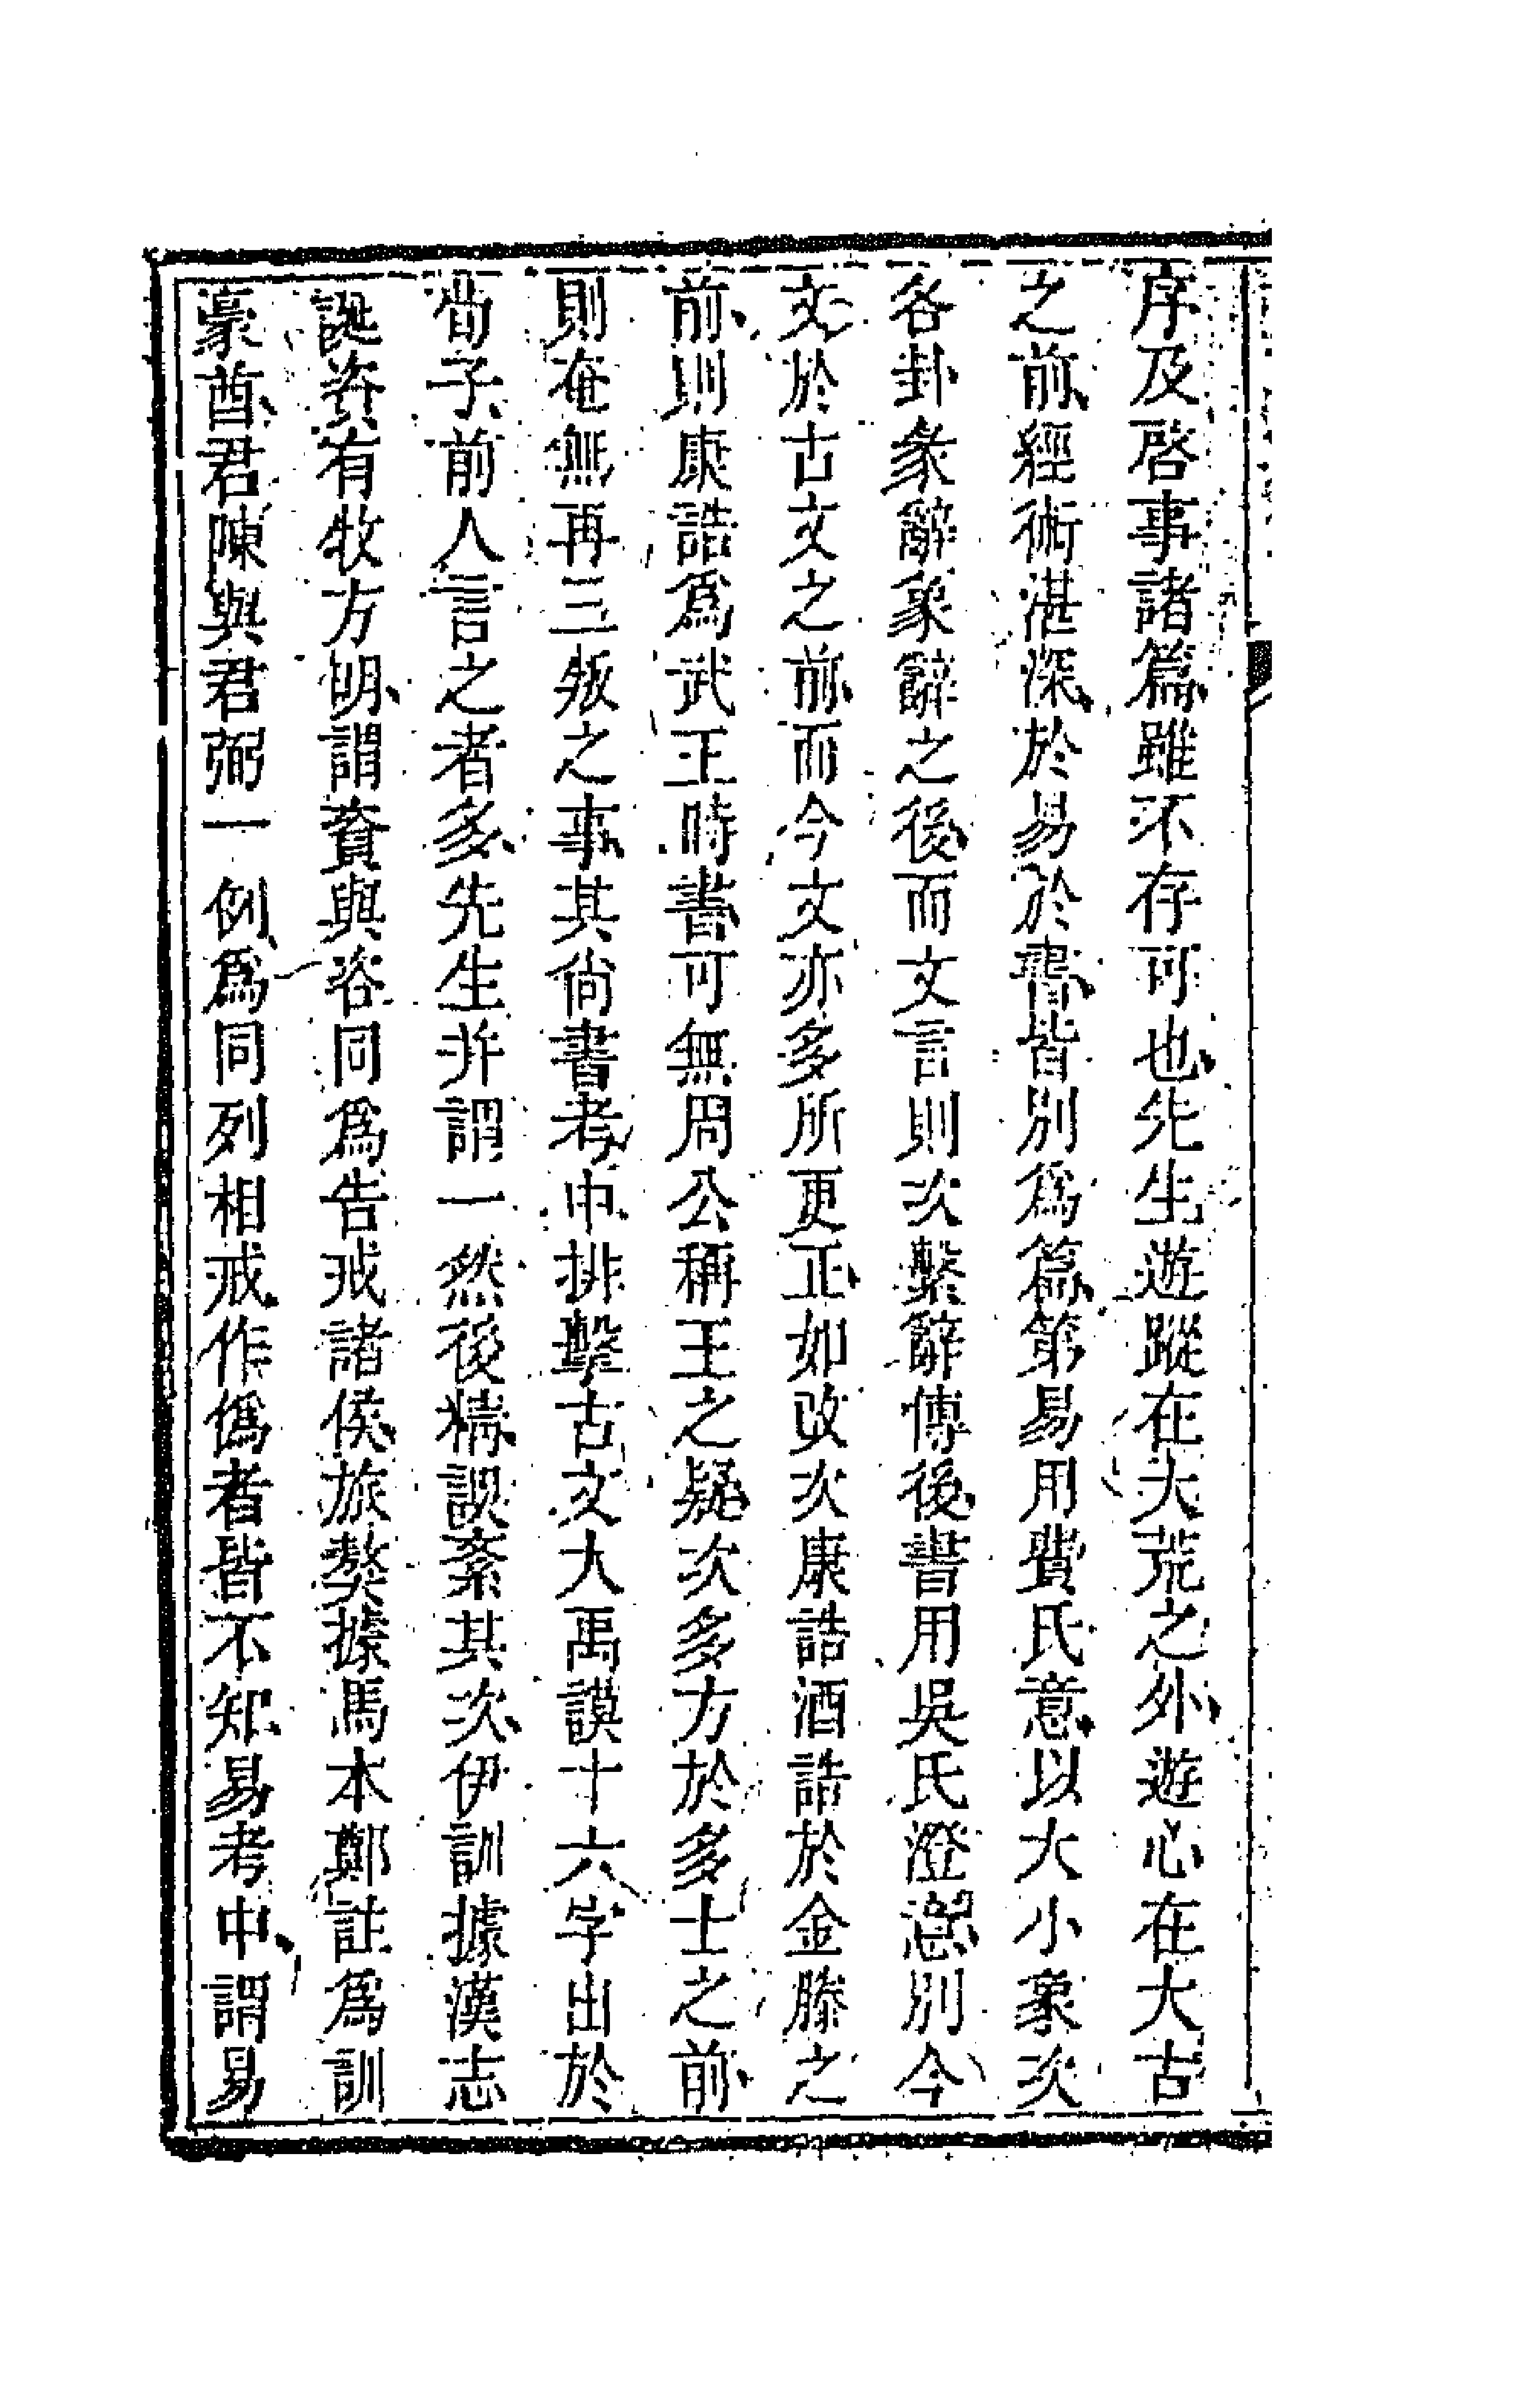 序及啓事諸篇雖不存可也先生遊蹤在大荒之外遊心在大古
之前經術湛深於易於書皆別爲篇第易用費氏意以大小象次
各卦彖辭象辭之後而文言則次繫辭傳後書用吳氏澄別今
文於古文之前而今文亦多所更正如攺次康誥酒誥於金縢之
前則康誥爲武王時書可無周公稱王之疑次多方於多士之前
則奄無再三叛之事其尙書考中排擊古文大禹謨十六字出於
荀子前人言之者多先生并謂一然後精誤紊其次伊訓據漢志
誕資有牧方明謂資與咨同爲告戒諸侯旅獒據馬本鄭註爲訓
豪酋君陳與君弼一例爲同列相戒作僞者皆不知易考中謂易